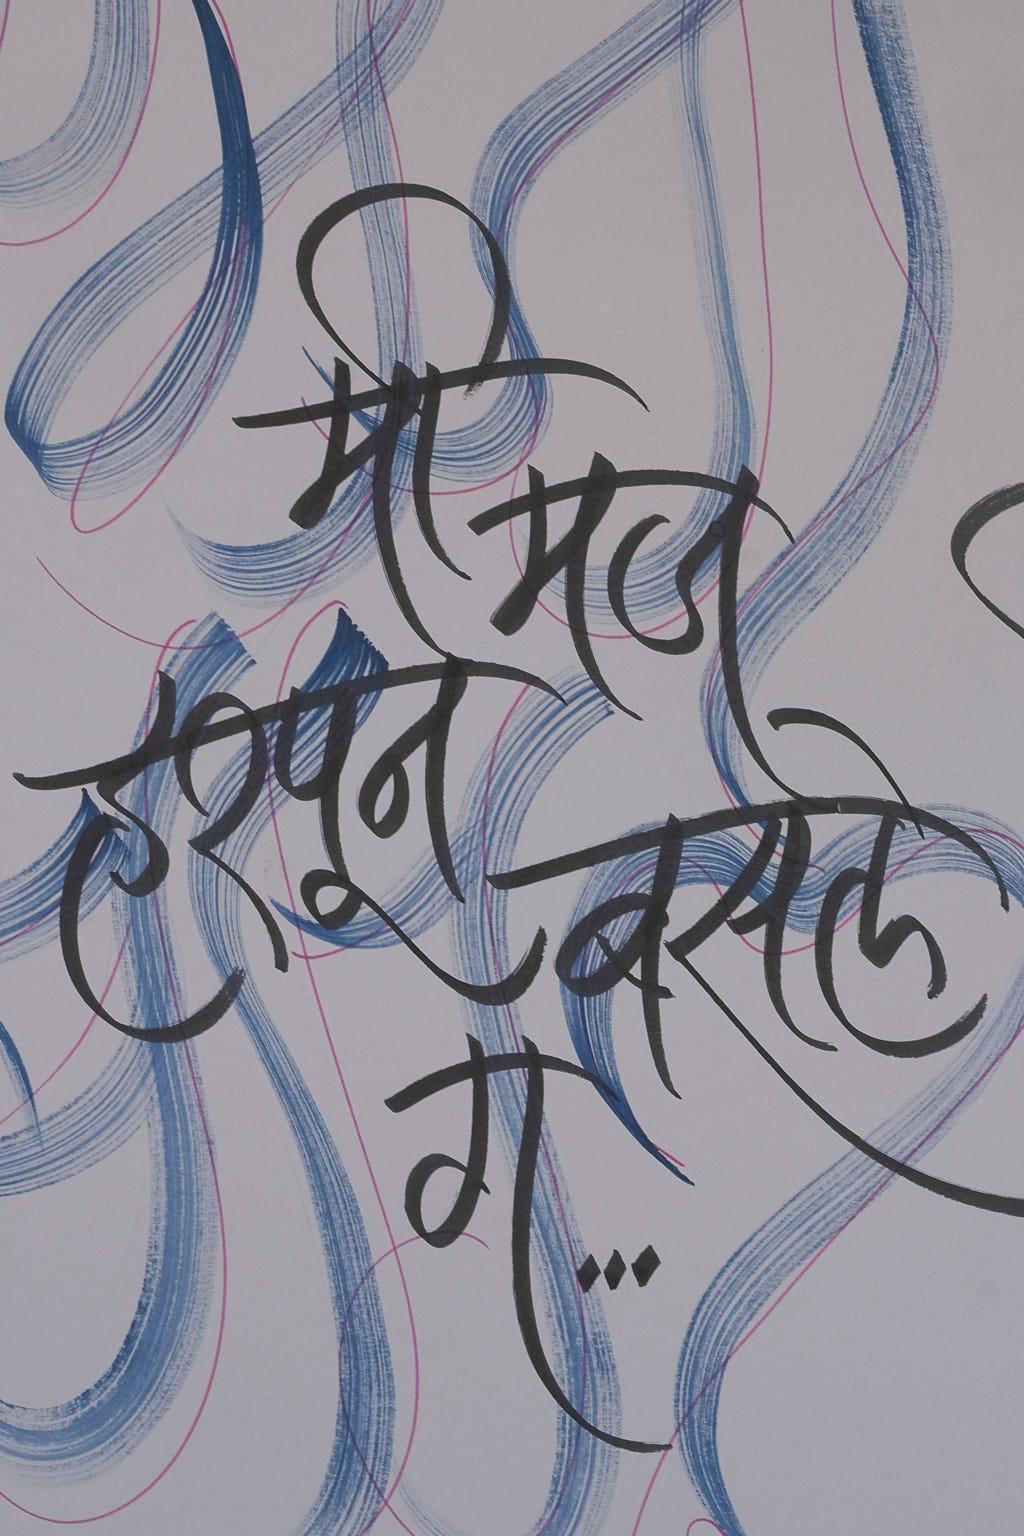 मी मज
हरपून बसले
ग...